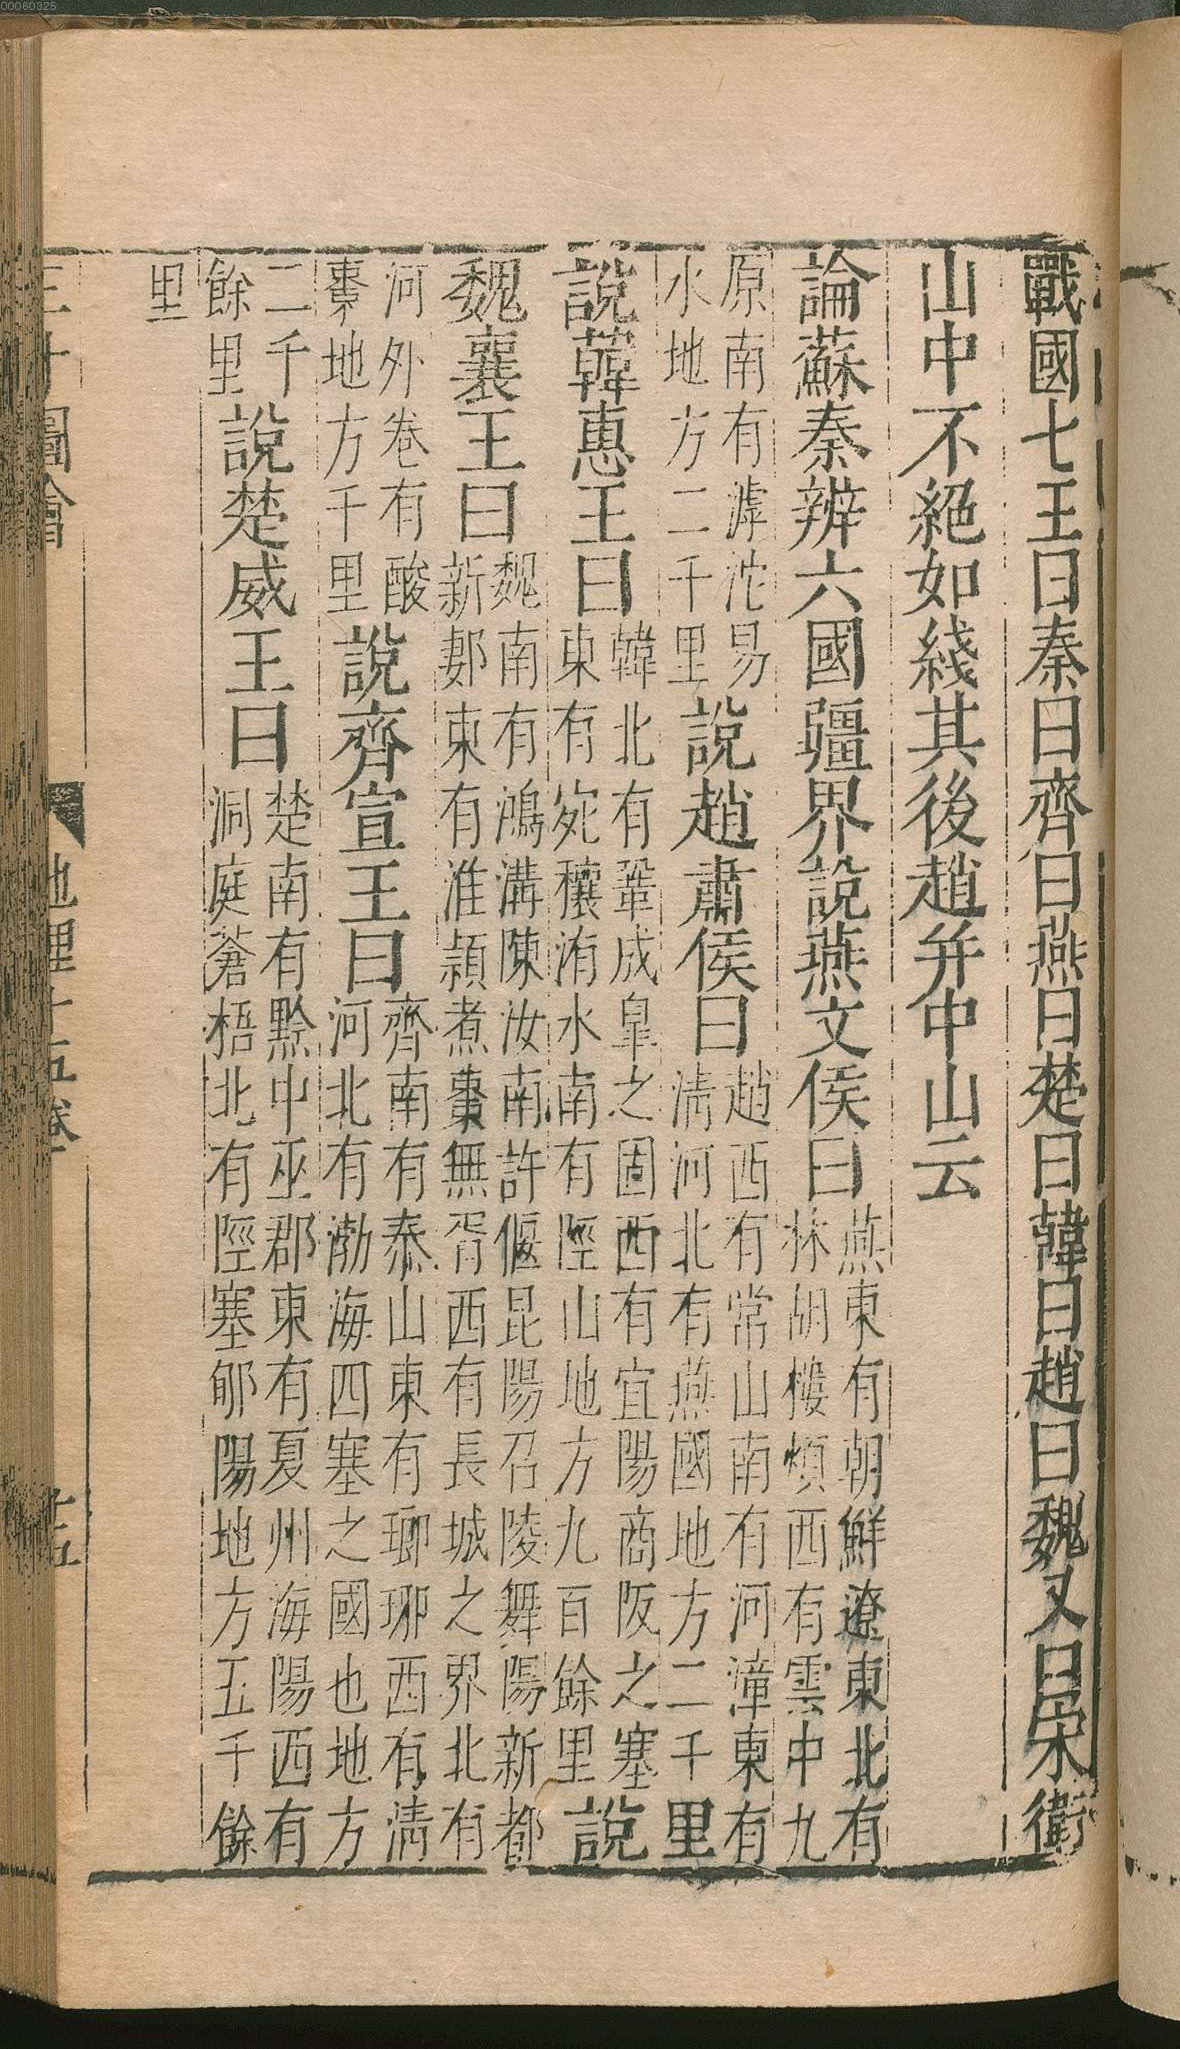 戰國七王曰秦曰齊曰燕曰楚曰韓曰趙曰魏又曰宋衛
山中不絕如綫其後趙并中山云
論蘇秦辨六國疆界說燕文侯曰燕東有朝鮮遼東北有
林胡樓煩西有雲中九
原南有滹沱易
水地方二千里說趙肅侯曰趙西有常山南有河漳東有
清河北有燕國地方二千里
說韓惠王曰韓北有鞏成皐之固西有宜陽商阪之塞
東有宛穰洧水南有陘山地方九百餘里說
魏襄王曰魏南有鴻溝陳汝南許偃昆陽召陵舞陽新都
新郪東有淮潁煮棗無胥西有長城之界北有
河外卷有酸
棗地方千里說齊宣王曰齊南有泰山東有瑯琊西有清
河北有渤海四塞之國也地方
二千
餘里說楚威王曰楚南有黔中巫郡東有夏州海陽西有
洞庭蒼梧北有陘塞郇陽地方五千餘
里
三才圖會
地理十五卷
十五
00060325